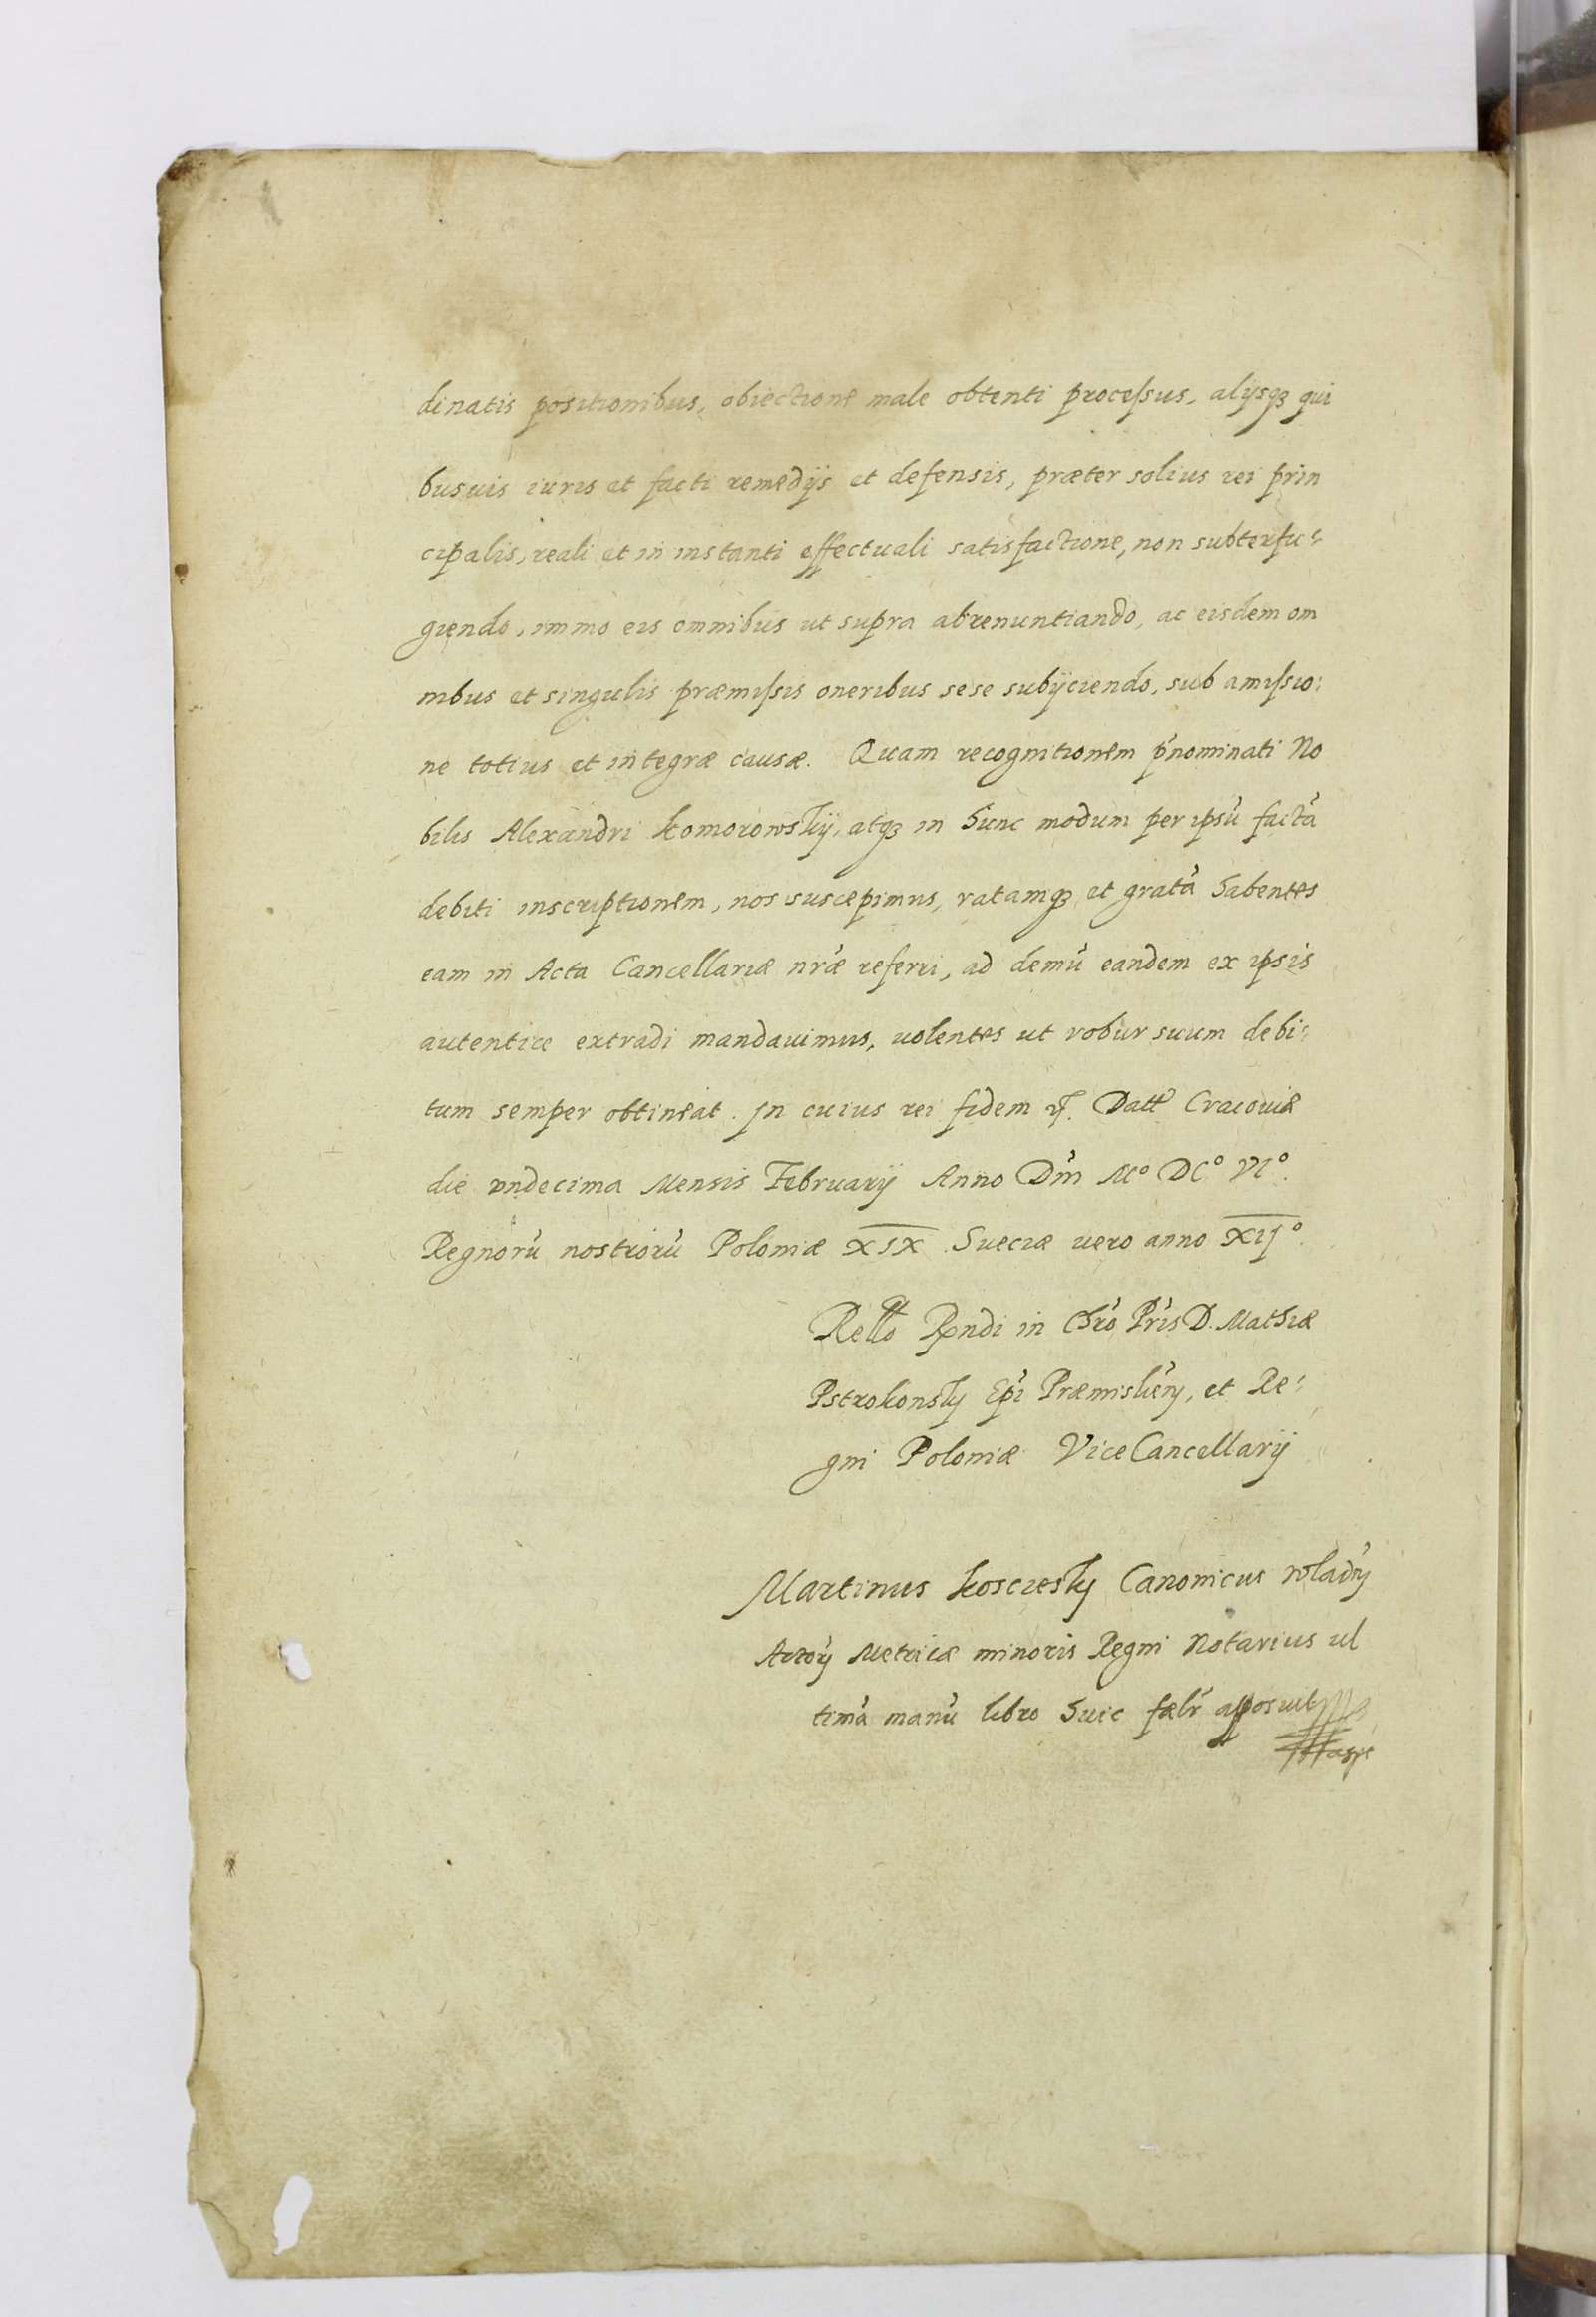 dinatis positionibus, obiectione male obtenti processus, alijsq3 qui
busuis iuris et facti remedijs et defensis, præter solius rei prin
cipalis, reali et in instanti effectuali satisfactione, non subterfu:
giendo, immo eis omnibus ut supra abrenuntiando, ac eisdem om
nibus et singulis præmissis oneribus sese subijciendo, sub amissio:
ne totius et integræ causæ. Quam recognitionem p̃nominati No
bilis Alexandri Komorowskij, atq3 in hunc modum per ipsũ factã
debiti inscriptionem, nos suscepimus, ratamq3 et gratã habentes
eam in Acta Cancellariæ nr̃æ referri, ad demũ eandem ex ipsis
autentice extradi mandauimus, uolentes ut robur suum debi:
tum semper obtineat. In cuius rei fidem Datt Cracouiæ
die vndecima Mensis Februarij Anno Dm̃ Mº DCº VIº.
Regnorũ nostrorũ Poloniæ XIX Sueciæ vero anno XIJº.
Rello Rndi in Chrõ Pr̃is D. Mathiæ
Pstrokonsky Ep̃i Præmislien̄, et Re:
gni Poloniæ ViceCancellarij
Martinus Kosciesky Canonicus
Metricæ minoris Regni Notarius ul
timã manũ libro huic fælr̃ apposuit